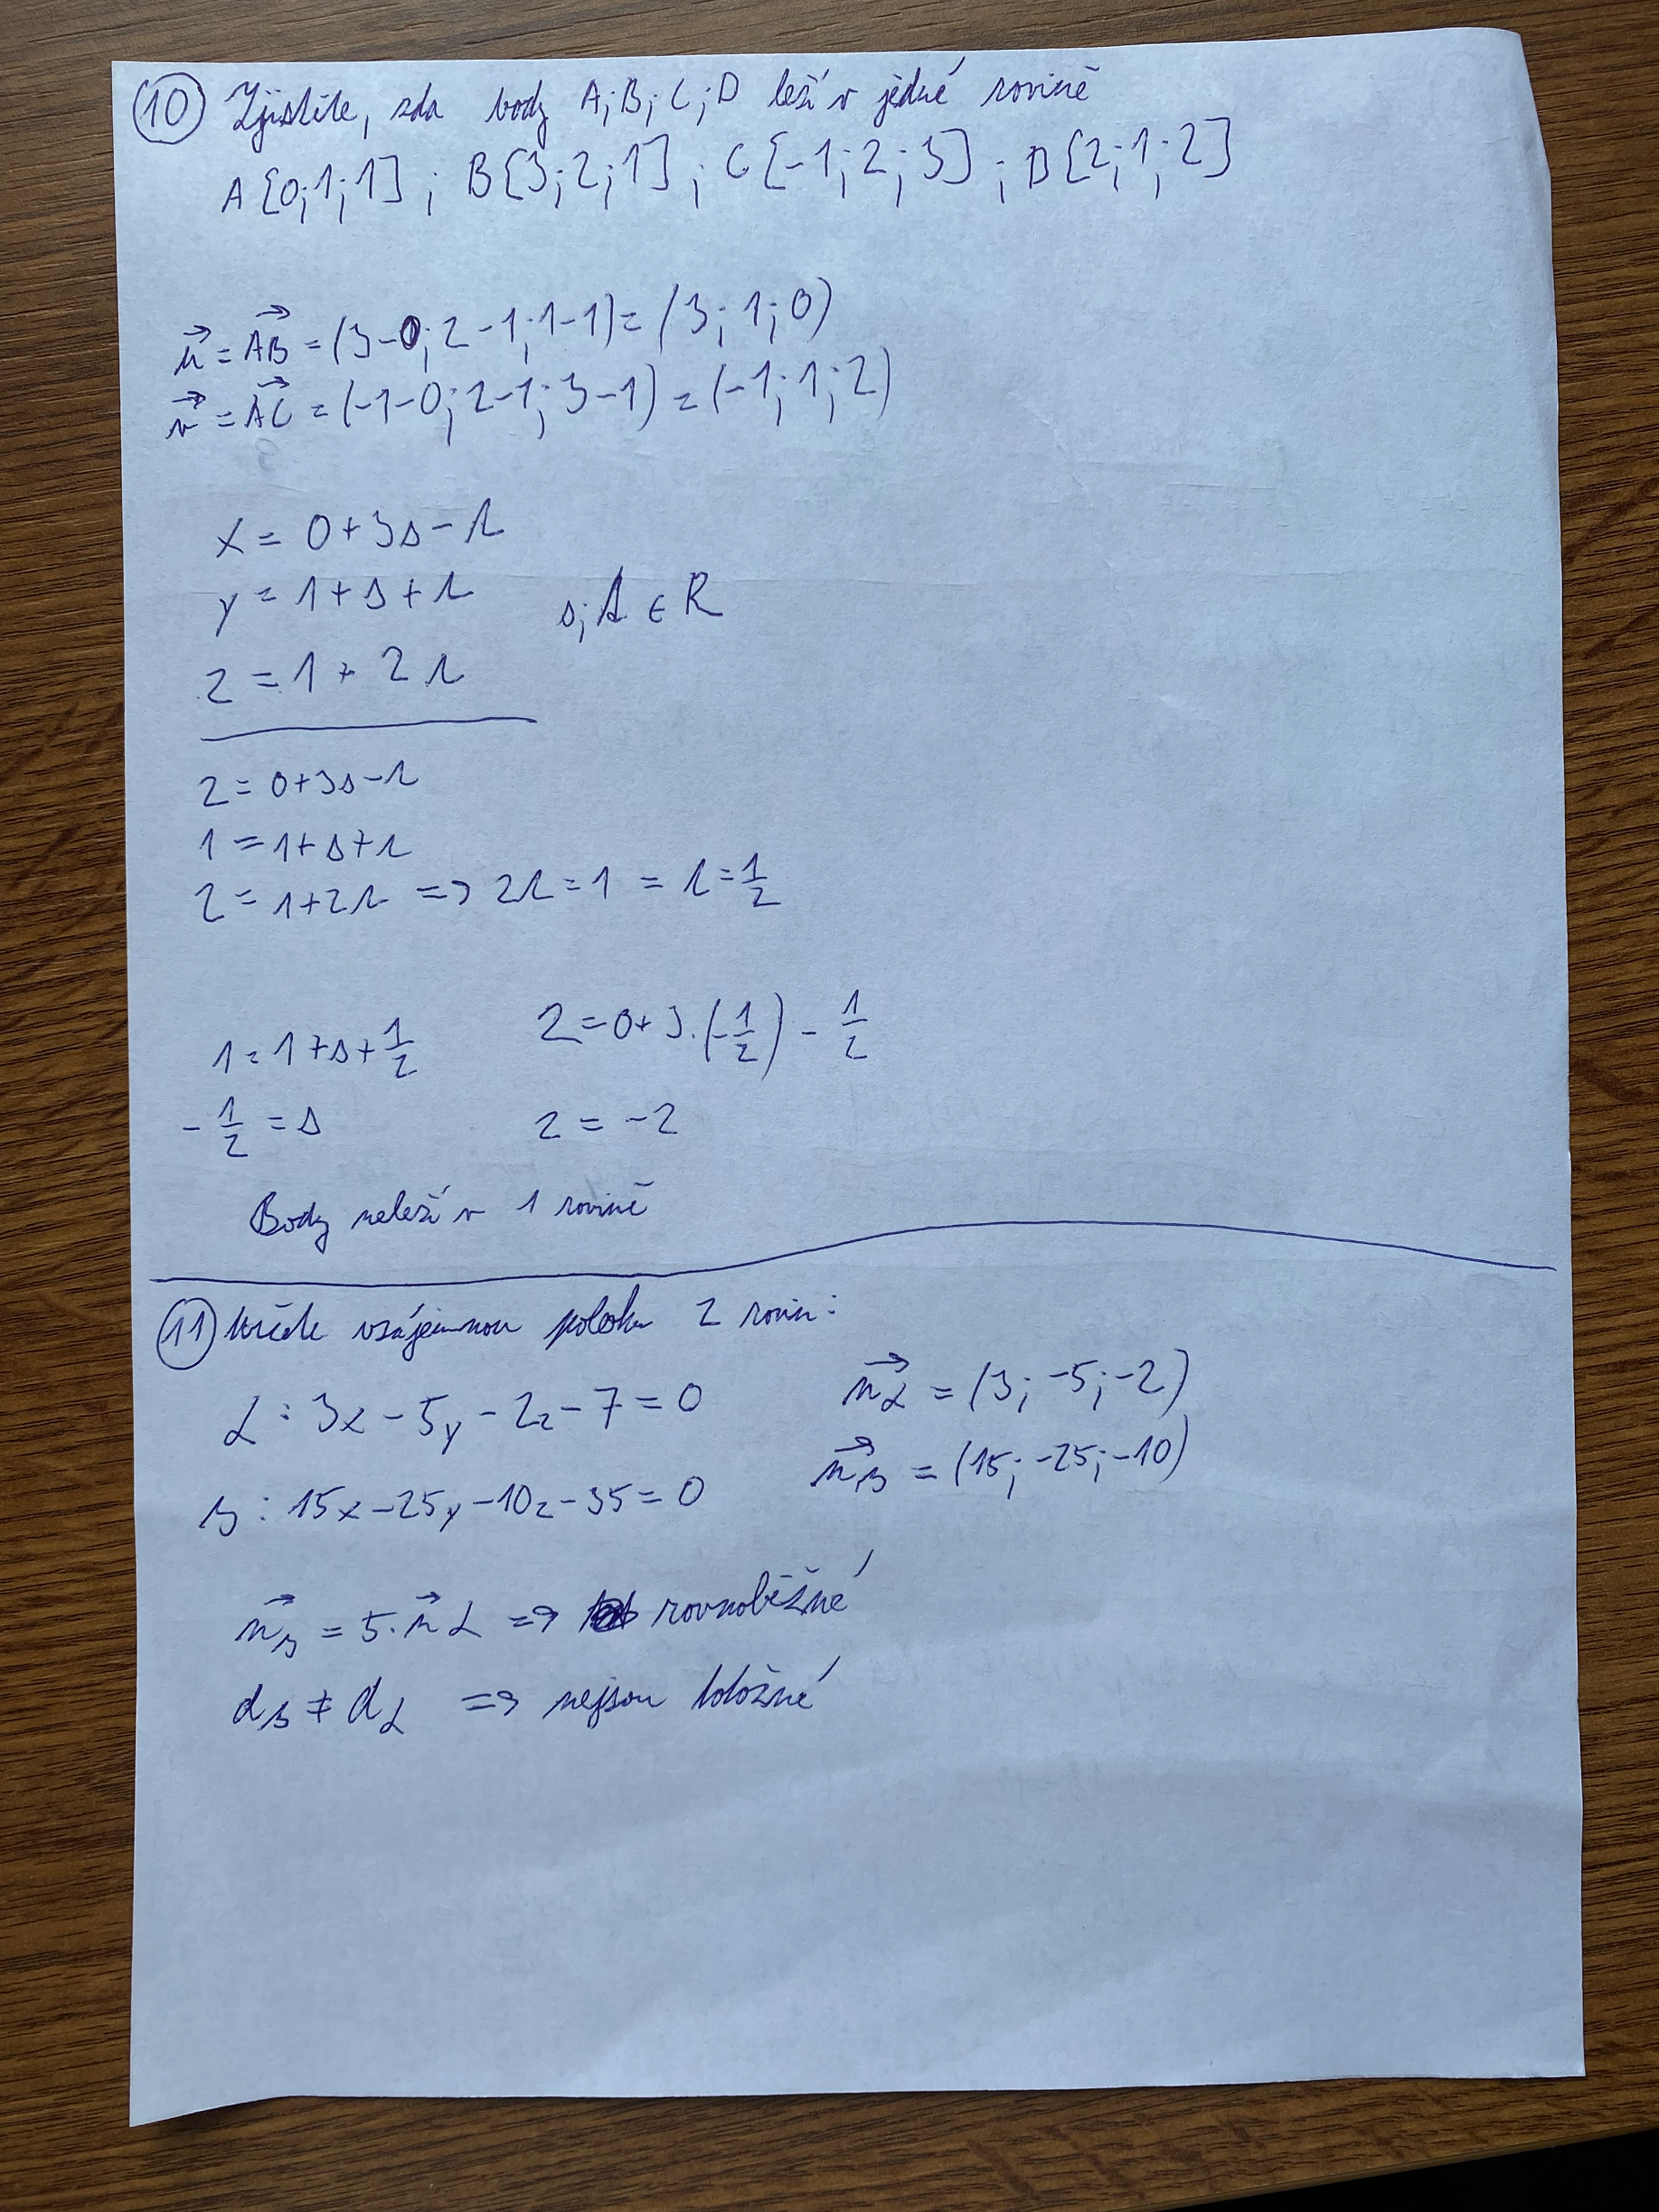 10 Zjistěte, zda body A; B; C; D leží v jedné rovině
A[0;1;1] ; B[3;2;1] ; C[-1;2;3] ; D[2;1;2]
u⃗ = AB⃗ = (3-0; 2-1; 1-1) = (3; 1; 0)
v⃗ = AC⃗ = (-1-0; 2-1; 3-1) = (-1; 1; 2)
x = 0+3s-r
y = 1+s+r s; r ∈ R
z = 1+2r
2 = 0+3s-r
1 = 1+s+r
2 = 1+2r => 2r = 1 = r = 1/2
1 = 1+s+1/2 2 = 0+3.(-1/2) - 1/2
-1/2 = s 2 = -2
Body neleží v 1 rovině
11 Určete vzájemnou polohu 2 rovin:
α: 3x-5y-2z-7=0 n⃗α = (3; -5; -2)
β: 15x-25y-10z-35=0 n⃗β = (15; -25; -10)
n⃗β = 5.n⃗α => rovnoběžné
dβ ≠ dα => nejsou totožné